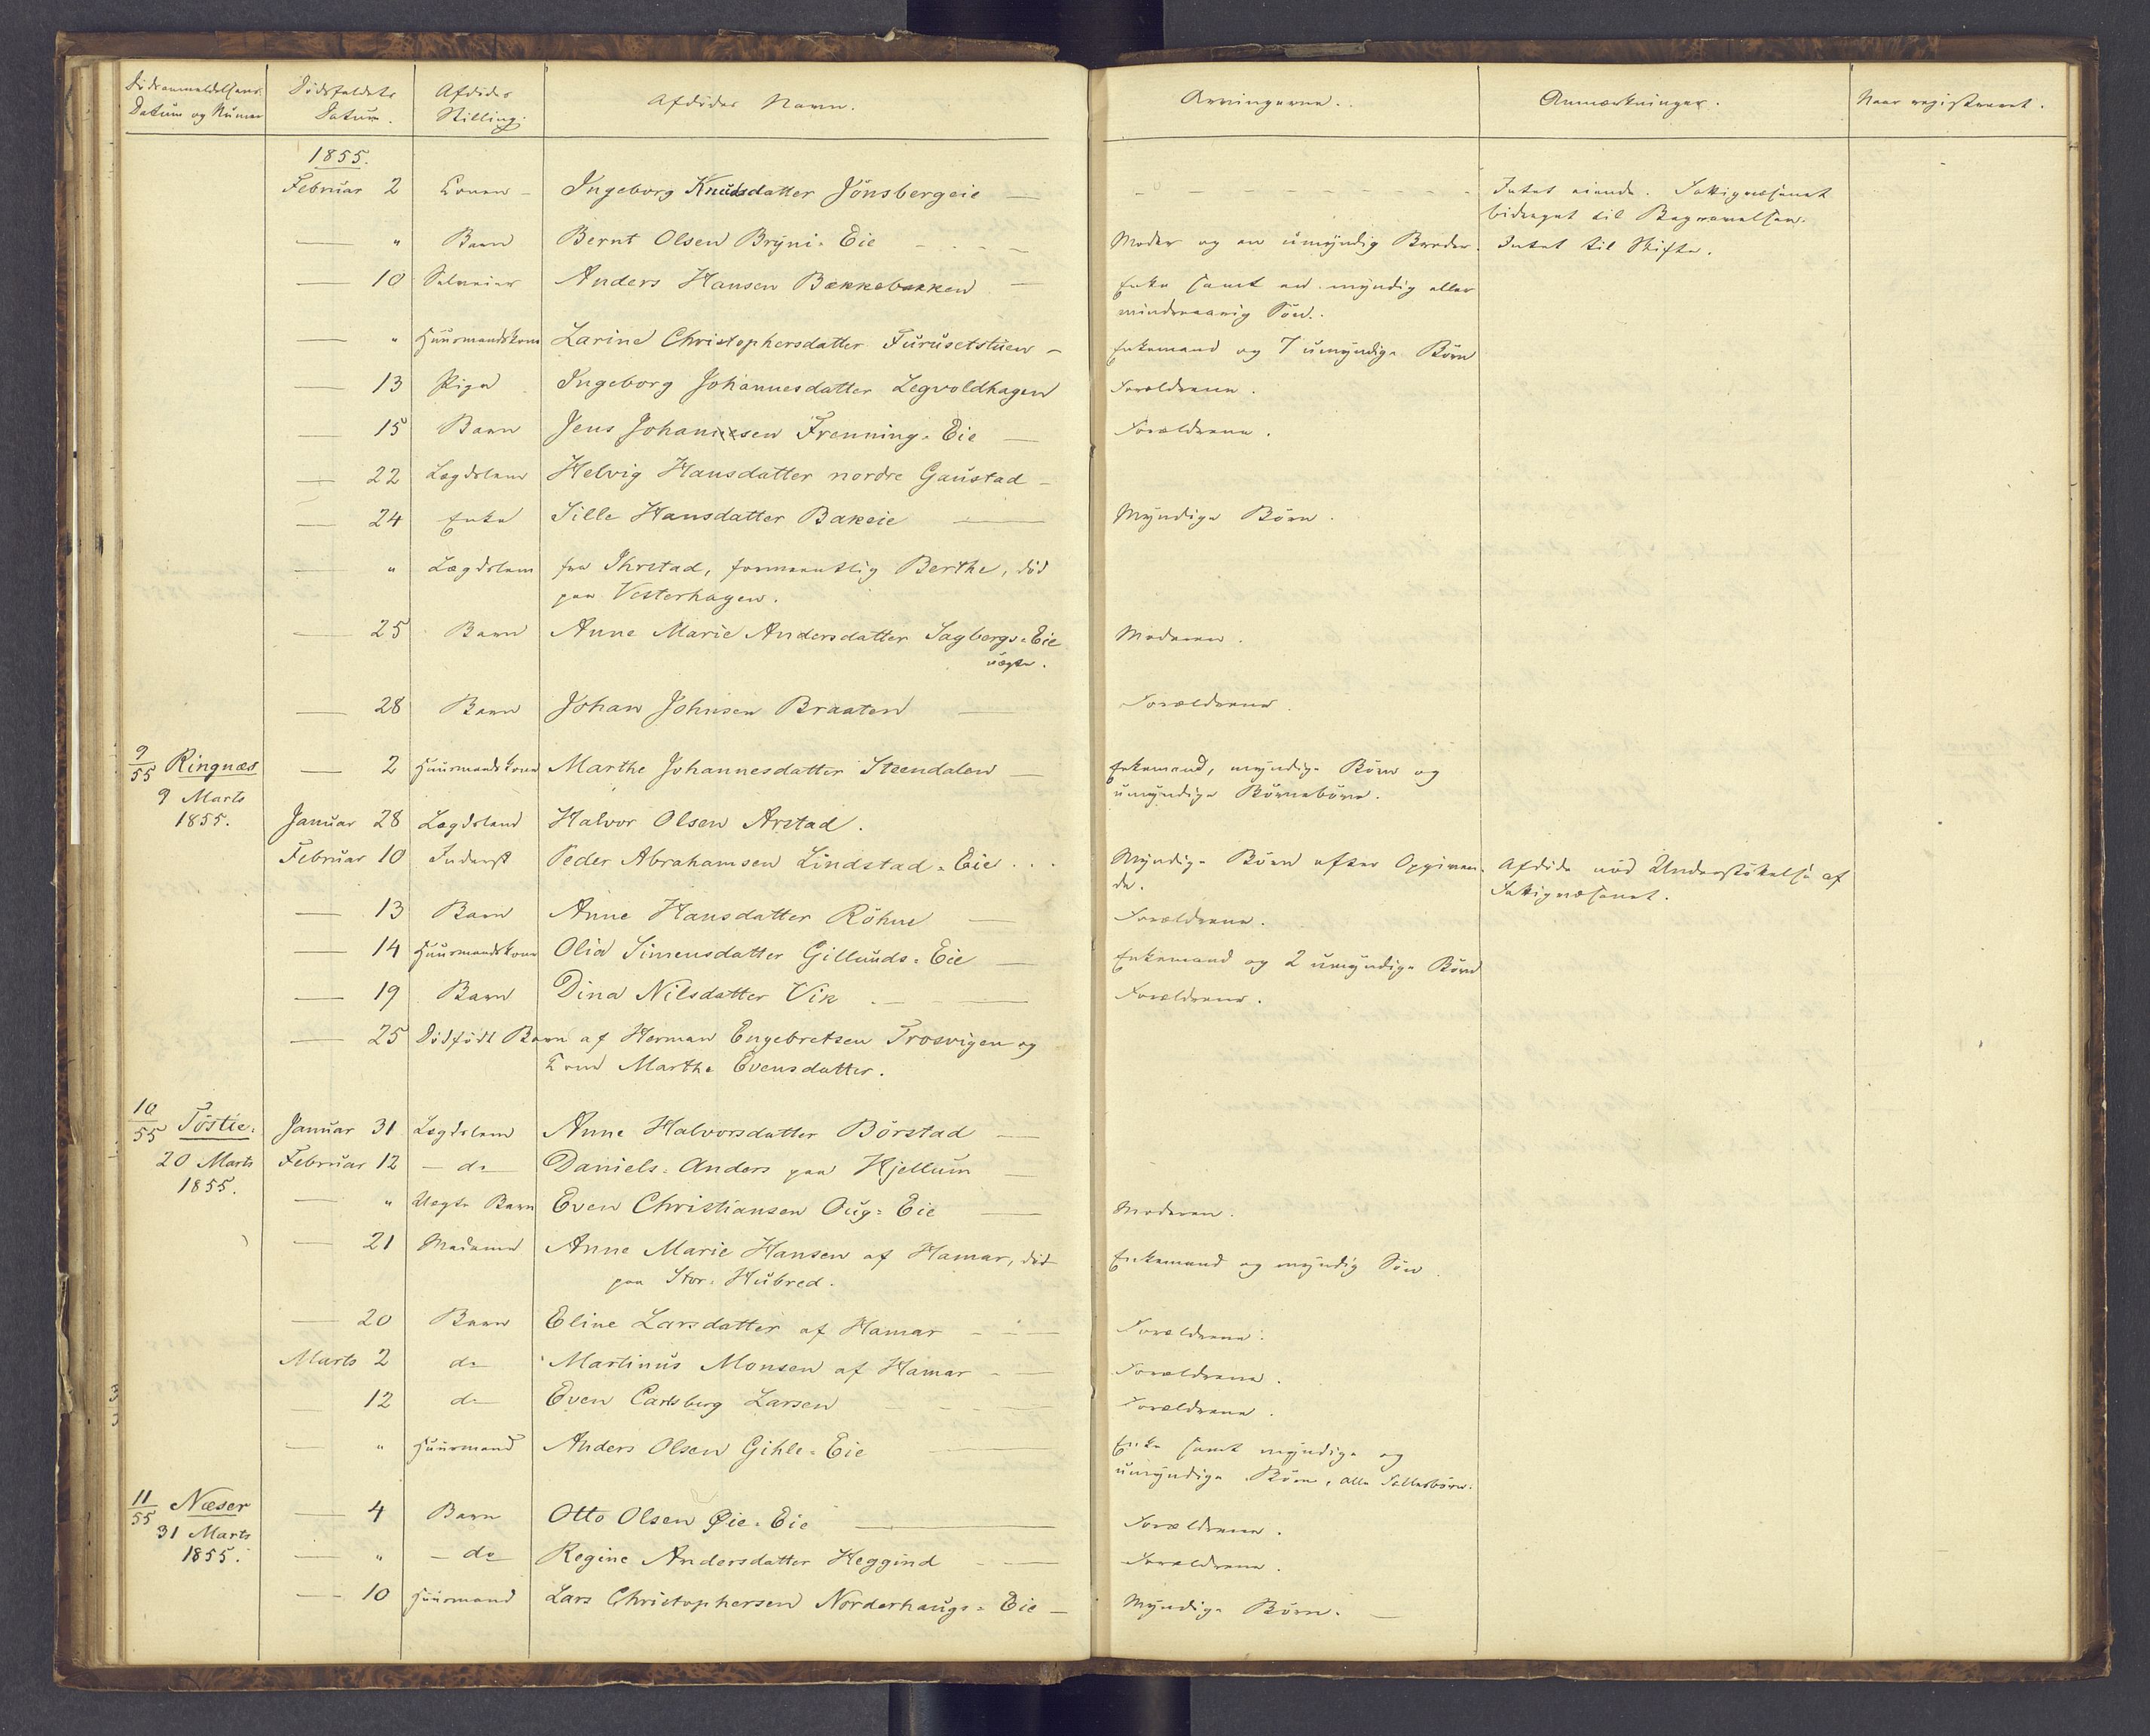 Dødsanmeldelsens Datum og Numer
Dødsfaldets Datum.
Afdødes Stilling.
Afdødes Navn.
Arvingerne.
Anmærkninger.
Naar registreret.
1855.
Februar 2 Konen - Ingeborg Knudsdatter Jönsbergeie — Intet eiende. Fattigvæsenet
bidraget til Begravelsen.
— " Barn Bernt Olsen Bryni-Eie Moder og en umyndig Broder. Intet til Skifte.
— 10 Selveier Anders Hansen Bækkebækken — Enke samt en myndig eller
mindreaarig Søn.
— " Huusmandskone Larine Christophersdatter Furusetstuen - Enkemand og 7 umyndige Børn
— 13 Pige Ingeborg Johannesdatter Legvoldhagen Forældrene.
— 15 Barn Jens Johannesen Frenning-Eie — Forældrene.
— 22 Lægdslem Helvig Hansdatter nordre Gaustad -
— 24 Enke Sille Hansdatter Bakeie — Myndige Børn.
— " Lægdslem fra Ihrstad, formeentlig Berthe, död
paa Vesterhagen.
— 25 Barn Anne Marie Andersdatter Sagbergs-Eie Moderen.
uægte.
— 28 Barn Johan Johnsen Braaten — Forældrene.
9/55 Ringnæs — 2 Huusmandskone Marthe Johannesdatter Steendalen — Enkemand, myndige Børn og
9 Marts umyndige Børnebørn.
1855. Januar 28 Lægdslem Halvor Olsen Arstad.
Februar 10 Inderst Peder Abrahamsen Lindstad-Eie . . . Myndige Børn efter Opgiven- Afdøde nød Understøttelse af
de. Fattigvæsenet.
— 13 Barn Anne Hansdatter Röhne — Forældrene.
— 14 Huusmandskone Olia Simensdatter Gillunds-Eie — Enkemand og 2 umyndige Børn
— 19 Barn Dina Nilsdatter Vik — Forældrene.
— 25 Dödfödt Barn af Herman Engebretsen Trosvigen og
Kone Marthe Evensdatter.
10/55 Töstie. Januar 31 Lægdslem Anne Halvorsdatter Börstad —
20 Marts Februar 12 - do - Daniels-Anders paa Kjellum —
1855. — " Uægte Barn Even Christiansen Oug-Eie — Moderen.
— 21 Madame Anne Marie Hansen af Hamar, död Enkemand og myndig Søn
paa Stor-Hubred.
— 20 Barn Eline Larsdatter af Hamar — Forældrene.
Marts 2 do Martinus Monsen af Hamar — Forældrene.
— 12 do Even Carlsberg Larsen — Forældrene.
— " Huusmand Anders Olsen Gihle-Eie — Enke samt myndige og
umyndige Børn, alle Fællesbørn.
11/55 Næser — 4 Barn Otto Olsen Øie-Eie — Forældrene.
31 Marts
1855. — " - do Regine Andersdatter Heggind — Forældrene.
— 10 Huusmand Lars Christophersen Norderhaugs-Eie — Myndige Børn. —